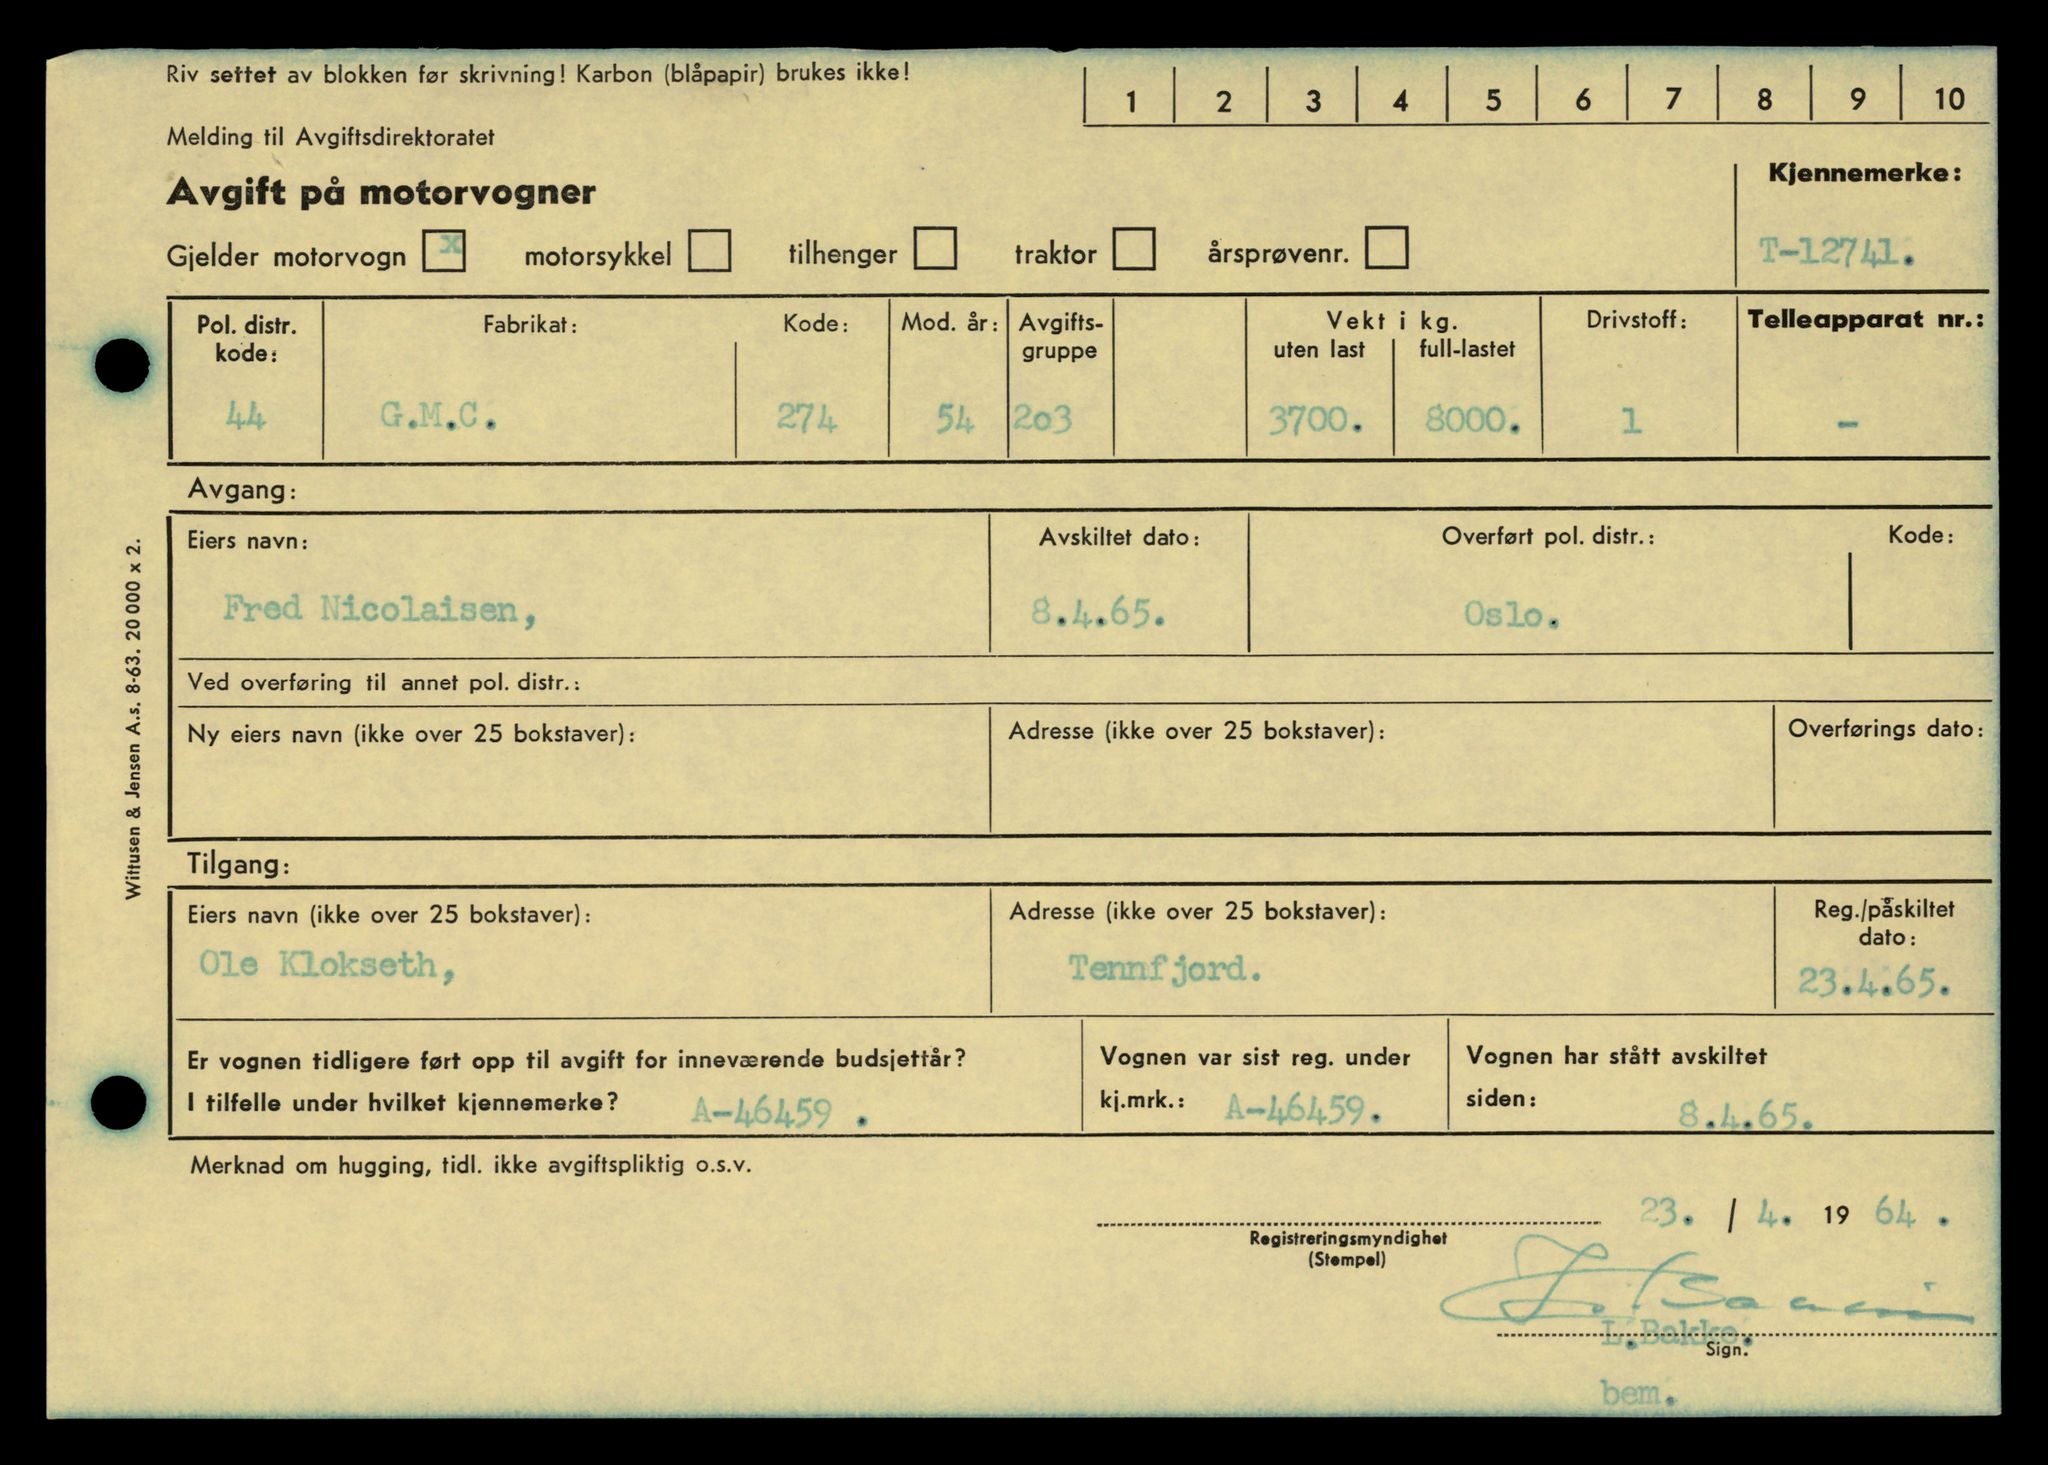 Riv settet av blokken før skrivning! Karbon (blåpapir) brukes ikke!
1 2 3 4 5 6 7 8 9 10
Melding til Avgiftsdirektoratet
Avgift på motorvogner
Kjennemerke:
Gjelder motorvogn x motorsykkel tilhenger traktor årsprøvenr.
T-12741.
Pol. distr. kode:
Fabrikat:
Kode:
Mod. år:
Avgifts-gruppe
Vekt i kg.
uten last
full-lastet
Drivstoff:
Telleapparat nr.:
44 G.M.C. 274 54 2o3 3700. 8000. 1 -
Avgang:
Eiers navn:
Avskiltet dato:
Overført pol. distr.:
Kode:
Fred Nicolaisen, 8.4.65. Oslo.
Ved overføring til annet pol. distr.:
Ny eiers navn (ikke over 25 bokstaver):
Adresse (ikke over 25 bokstaver):
Overførings dato:
Tilgang:
Eiers navn (ikke over 25 bokstaver):
Adresse (ikke over 25 bokstaver):
Reg./påskiltet dato:
Ole Klokseth, Tennfjord. 23.4.65.
Er vognen tidligere ført opp til avgift for inneværende budsjettår?
I tilfelle under hvilket kjennemerke? A-46459 .
Vognen var sist reg. under
kj.mrk.: A-46459.
Vognen har stått avskiltet
siden: 8.4.65.
Merknad om hugging, tidl. ikke avgiftspliktig o.s.v.
23. / 4. 19 64 .
Registreringsmyndighet
(Stempel)
L.Bakke.
Sign.
bem.
Wittusen & Jensen A.s. 8-63. 20 000 x 2.